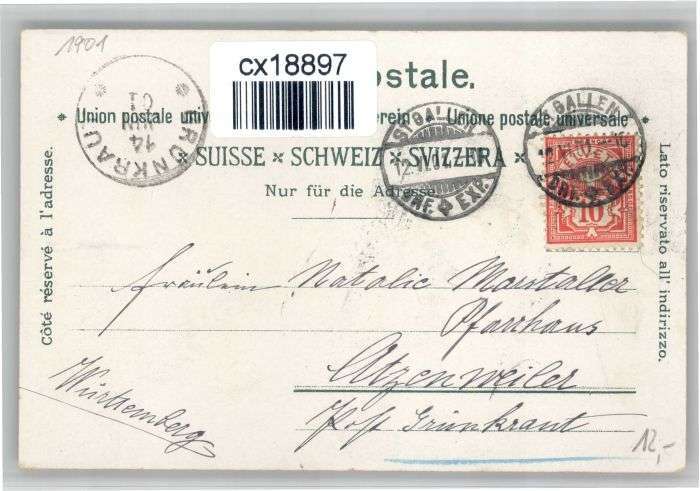 1901
cx18897
ostale.
* Union postale unive erein Unione postale universale *
* SUISSE * SCHWEIZ * SVIZZERA *
Nur für die Adresse
Côté réservé à l'adresse.
Lato riservato all' indirizzo.
GRÜNKRAUT
14
JUN
01
ST. GALLEN
BRF. EXP.
ST. GALLEN
BRF. EXP.
10
Fräulein Natalie Marstaller
Pfarrhaus
Atzenweiler
Post Grünkraut
Württemberg
12,-